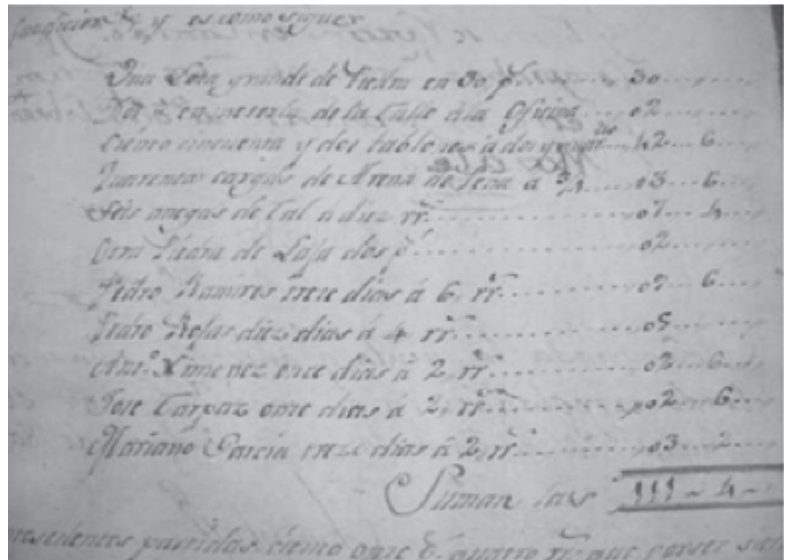 y es como sigue
Una Losa grande de Piedra en 30 p.s ... 30
en meterla de la Calle à la Oficina ... 02
Ciento cincuenta y dos tablones à dos y ... 42 .. 6
Quarenta cargas de Arena de ... à ¾ ... 03 .. 6
Seis anegas de Cal à diez rr.s ... 07 .. 4
Piedra de Laja dos p.s ... 02
Pedro Ramires trece dias à 6 rr.s ... 09 .. 6
Pedro Rosas diez dias à 4 rr.s ... 05
Ant.o Ximenez once dias à 2 rr.s ... 02 .. 6
Jose Carpaz onse dias à 2 rr.s ... 02 .. 6
Mariano Garcia treze dias à 2 rr.s ... 03 .. 2
Suman las 111 ~ 4 ~
partidas ciento onse p.s quatro rr.s que